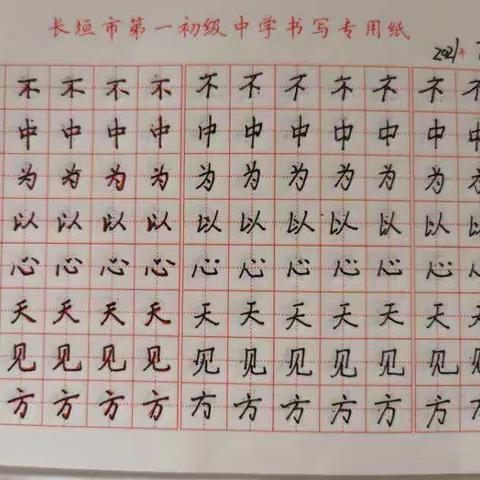 长垣市第一初级中学书写专用纸
2021年
不不不不不不不不不不不
中中中中中中中中中中中
为为为为为为为为为为为
以以以以以以以以以以以
心心心心心心心心心心心
天天天天天天天天天天天
见见见见见见见见见见见
方方方方方方方方方方方